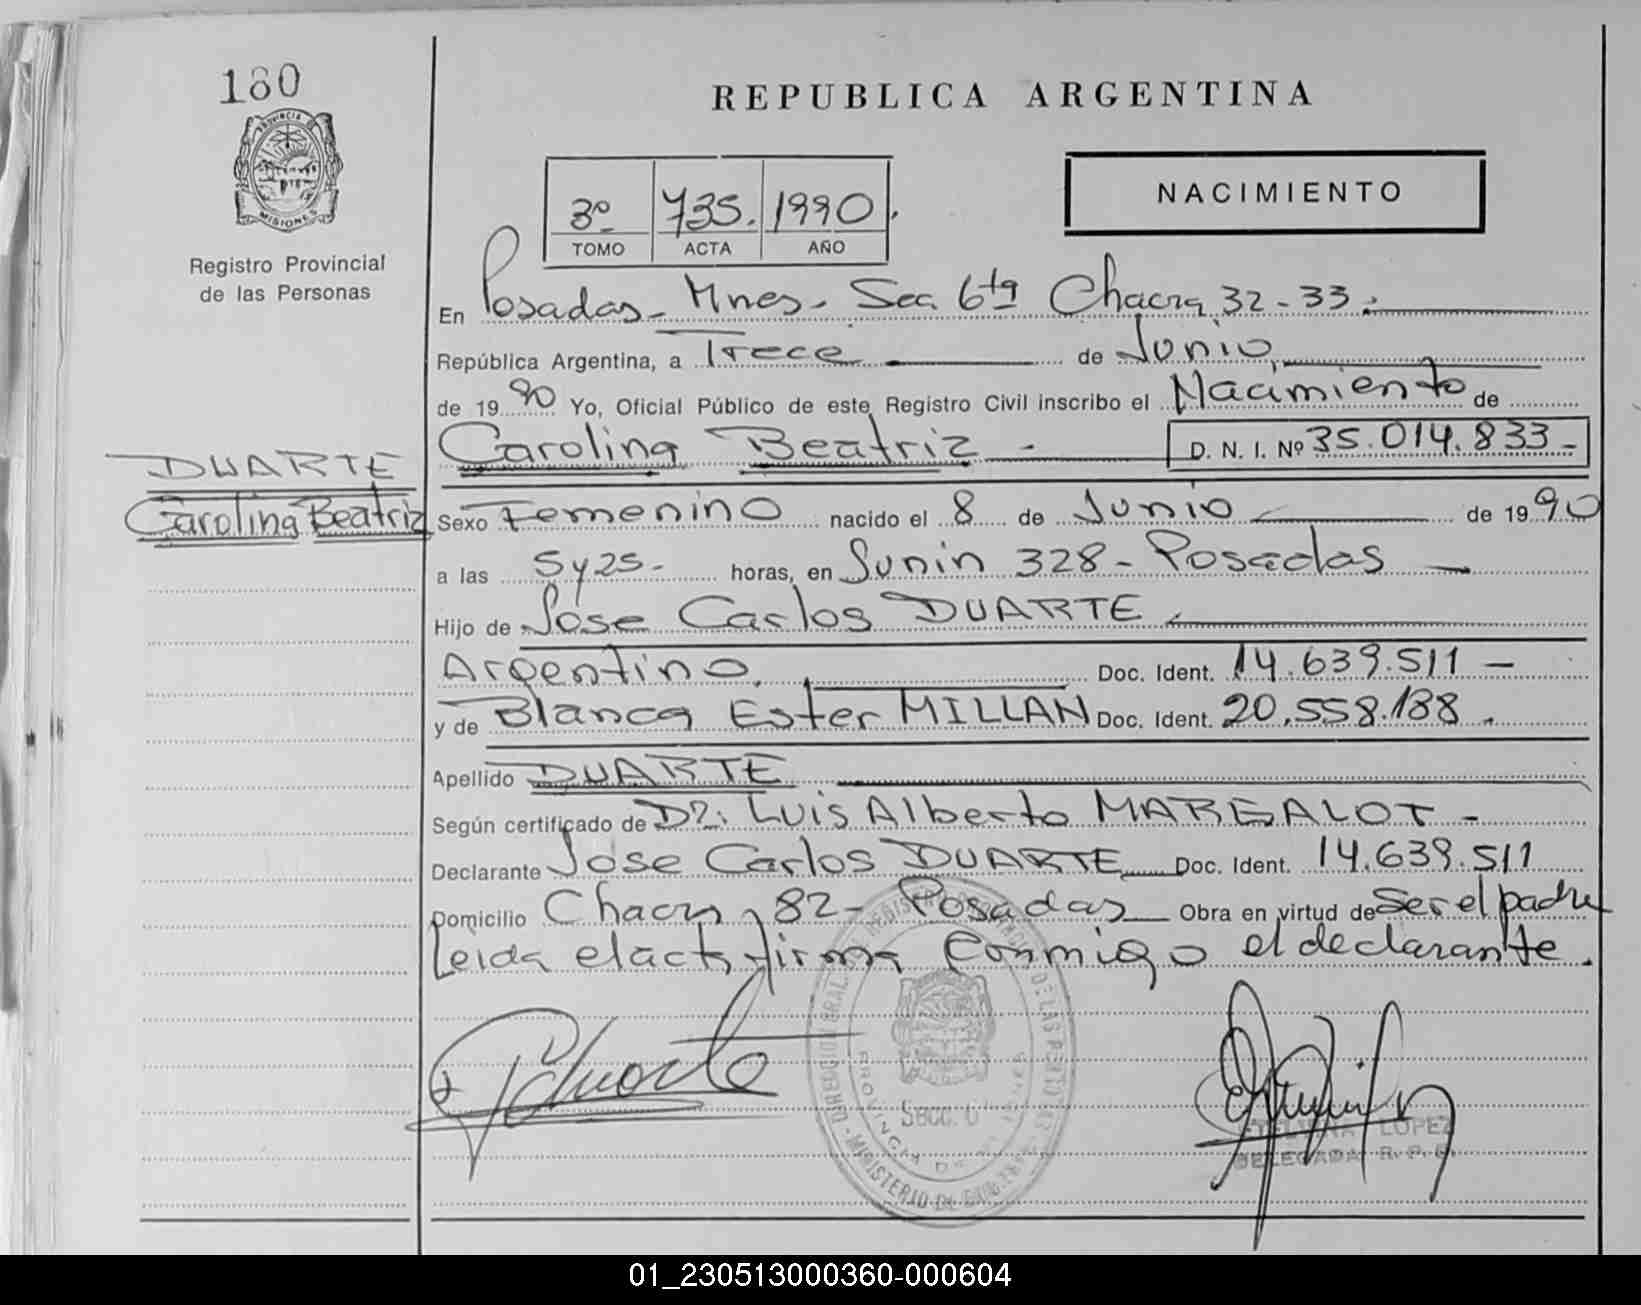 180
PROVINCIA DE
MISIONES
Registro Provincial
de las Personas
REPUBLICA ARGENTINA
3º 735. 1990.
TOMO ACTA AÑO
NACIMIENTO
En Posadas - Mnes - Sec. 6ta Chacra 32-33.
República Argentina, a Trece de Junio
de 1990 Yo, Oficial Público de este Registro Civil inscribo el Nacimiento de
Carolina Beatriz - D. N. I. Nº 35.014.833-
DUARTE
Carolina Beatriz
Sexo Femenino nacido el 8 de Junio de 1990
a las 5y25- horas, en Junin 328- Posadas
Hijo de Jose Carlos DUARTE
Argentino. Doc. Ident. 14.639.511 -
y de Blanca Ester MILLAN Doc. Ident. 20.558.188.
Apellido DUARTE
Según certificado de Dr: Luis Alberto MARGALOT -
Declarante Jose Carlos DUARTE Doc. Ident. 14.639.511
Domicilio Chacra 82- Posadas Obra en virtud de Ser el padre
Leida el acta firma Conmigo el declarante.
Duarte
DIRECCION GRAL. REGISTRO DE LAS PERSONAS
PROVINCIA DE MISIONES
Secc. 6
MINISTERIO DE
LOPEZ
DELEGADA R. P. P.
01_230513000360-000604